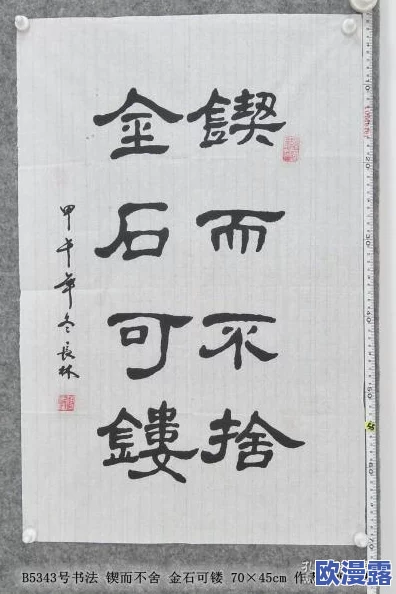 鍥而不捨
金石可鏤
甲午年冬長林
B5343号书法 锲而不舍 金石可镂 70×45cm 作
欧漫露